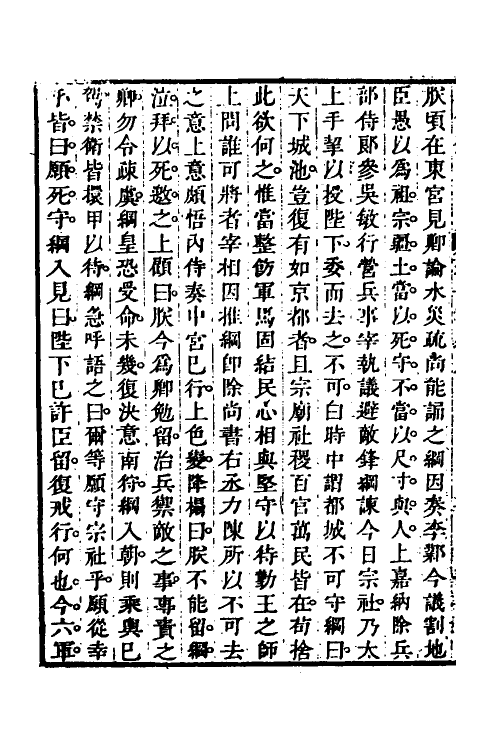 朕頃在東宮見卿論水災疏尚能誦之綱因奏李鄴今議割地
臣愚以為祖宗疆土當以死守不當以尺寸與人上嘉納除兵
部侍郎參吳敏行營兵事宰執議避敵鋒綱諫今日宗社乃太
上手挈以授陛下委而去之不可白時中謂都城不可守綱曰
天下城池豈復有如京都者且宗廟社稷百官萬民皆在苟捨
此欲何之惟當整飭軍馬固結民心相與堅守以待勤王之師
上問誰可將者宰相因推綱卽除尚書右丞力陳所以不可去
之意上意頗悟內侍奏中宮已行上色變降榻曰朕不能留綱
泣拜以死邀之上顧曰朕今為卿勉留治兵禦敵之事專責之
卿勿令疎虞綱皇恐受命未幾復決意南狩綱入朝則乘輿已
駕禁衛皆擐甲以待綱急呼語之曰爾等願守宗社乎願從幸
乎皆曰願死守綱入見曰陛下已許臣留復戒行何也今六軍